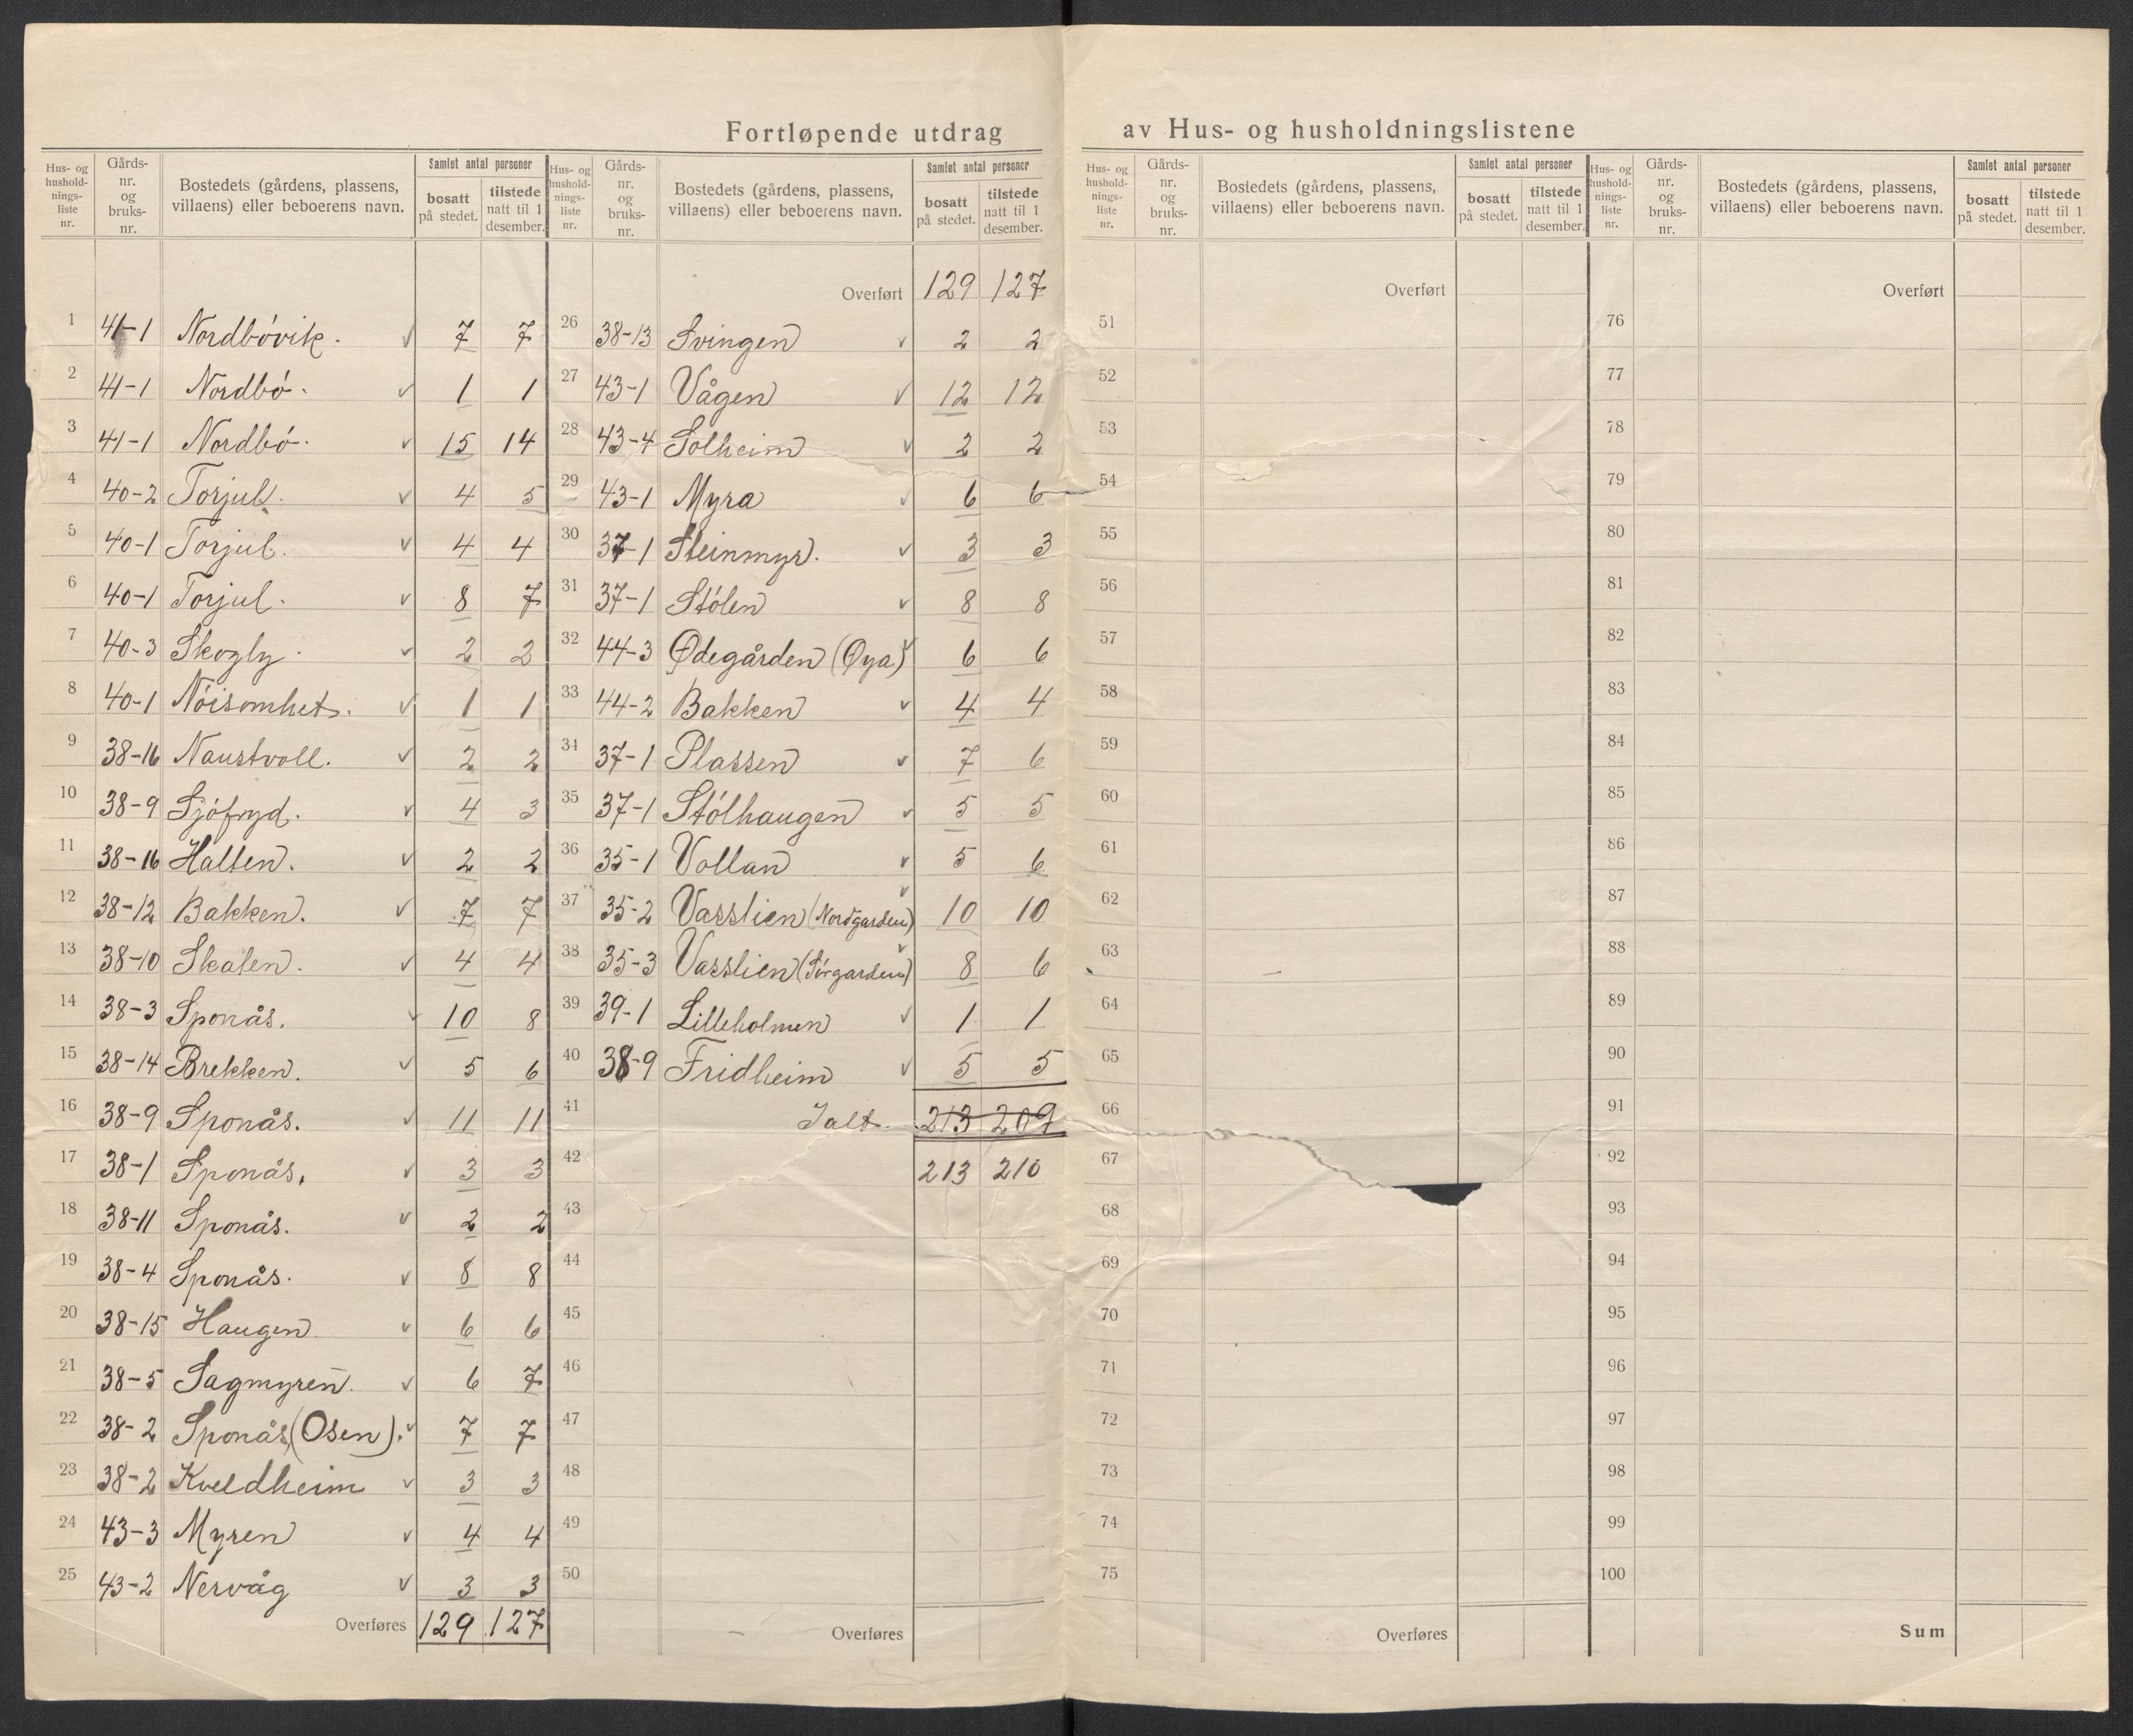 Fortløpende utdrag av Hus- og husholdningslistene
Hus- og husholdnings-liste nr. | Gårds-nr. og bruks-nr. | Bostedets (gårdens, plassens, villaens) eller beboerens navn. | Samlet antal personer | bosatt på stedet. | tilstede natt til 1 desember.
1 41-1 Nordbóvik. ✓ 7 7
2 41-1 Nordbó. ✓ 1 1
3 41-1 Nordbó. ✓ 15 14
4 40-2 Torjul. ✓ 4 5
5 40-1 Torjul. ✓ 4 4
6 40-1 Torjul. ✓ 8 7
7 40-3 Skogly. ✓ 2 2
8 40-1 Nóisomhet. ✓ 1 1
9 38-16 Naustvoll. ✓ 2 2
10 38-9 Sjófryd. ✓ 4 3
11 38-16 Halten. ✓ 2 2
12 38-12 Bakken. ✓ 7 7
13 38-10 Skaten. ✓ 4 4
14 38-3 Sponås. ✓ 10 8
15 38-14 Brekken. ✓ 5 6
16 38-9 Sponås. ✓ 11 11
17 38-1 Sponås. ✓ 3 3
18 38-11 Sponås. ✓ 2 2
19 38-4 Sponås. ✓ 8 8
20 38-15 Haugen. ✓ 6 6
21 38-5 Sagmyren. ✓ 6 7
22 38-2 Sponås (Osen). ✓ 7 7
23 38-2 Kveldheim ✓ 3 3
24 43-3 Myren ✓ 4 4
25 43-2 Nervåg ✓ 3 3
Overføres 129 127
Hus- og husholdnings-liste nr. | Gårds-nr. og bruks-nr. | Bostedets (gårdens, plassens, villaens) eller beboerens navn. | Samlet antal personer | bosatt på stedet. | tilstede natt til 1 desember.
Overført 129 127
26 38-13 Svingen ✓ 2 2
27 43-1 Vågen ✓ 12 12
28 43-4 Solheim ✓ 2 2
29 43-1 Myra ✓ 6 6
30 37-1 Steinmyr. ✓ 3 3
31 37-1 Stólen ✓ 8 8
32 44-3 Ødegården (Øya) ✓ 6 6
33 44-2 Bakken ✓ 4 4
34 37-1 Plassen ✓ 7 6
35 37-1 Stólhaugen ✓ 5 5
36 35-1 Vollan ✓ 5 6
37 35-2 Vasslien (Nordgarden) ✓ 10 10
38 35-3 Vasslien (Sórgarden) ✓ 8 6
39 39-1 Lilleholmen ✓ 1 1
40 38-9 Fridheim ✓ 5 5
41 Ialt. 213 209
42 213 210
43
44
45
46
47
48
49
50
Overføres
Hus- og husholdnings-liste nr. | Gårds-nr. og bruks-nr. | Bostedets (gårdens, plassens, villaens) eller beboerens navn. | Samlet antal personer | bosatt på stedet. | tilstede natt til 1 desember.
Overført
51
52
53
54
55
56
57
58
59
60
61
62
63
64
65
66
67
68
69
70
71
72
73
74
75
Overføres
Hus- og husholdnings-liste nr. | Gårds-nr. og bruks-nr. | Bostedets (gårdens, plassens, villaens) eller beboerens navn. | Samlet antal personer | bosatt på stedet. | tilstede natt til 1 desember.
Overført
76
77
78
79
80
81
82
83
84
85
86
87
88
89
90
91
92
93
94
95
96
97
98
99
100
Sum